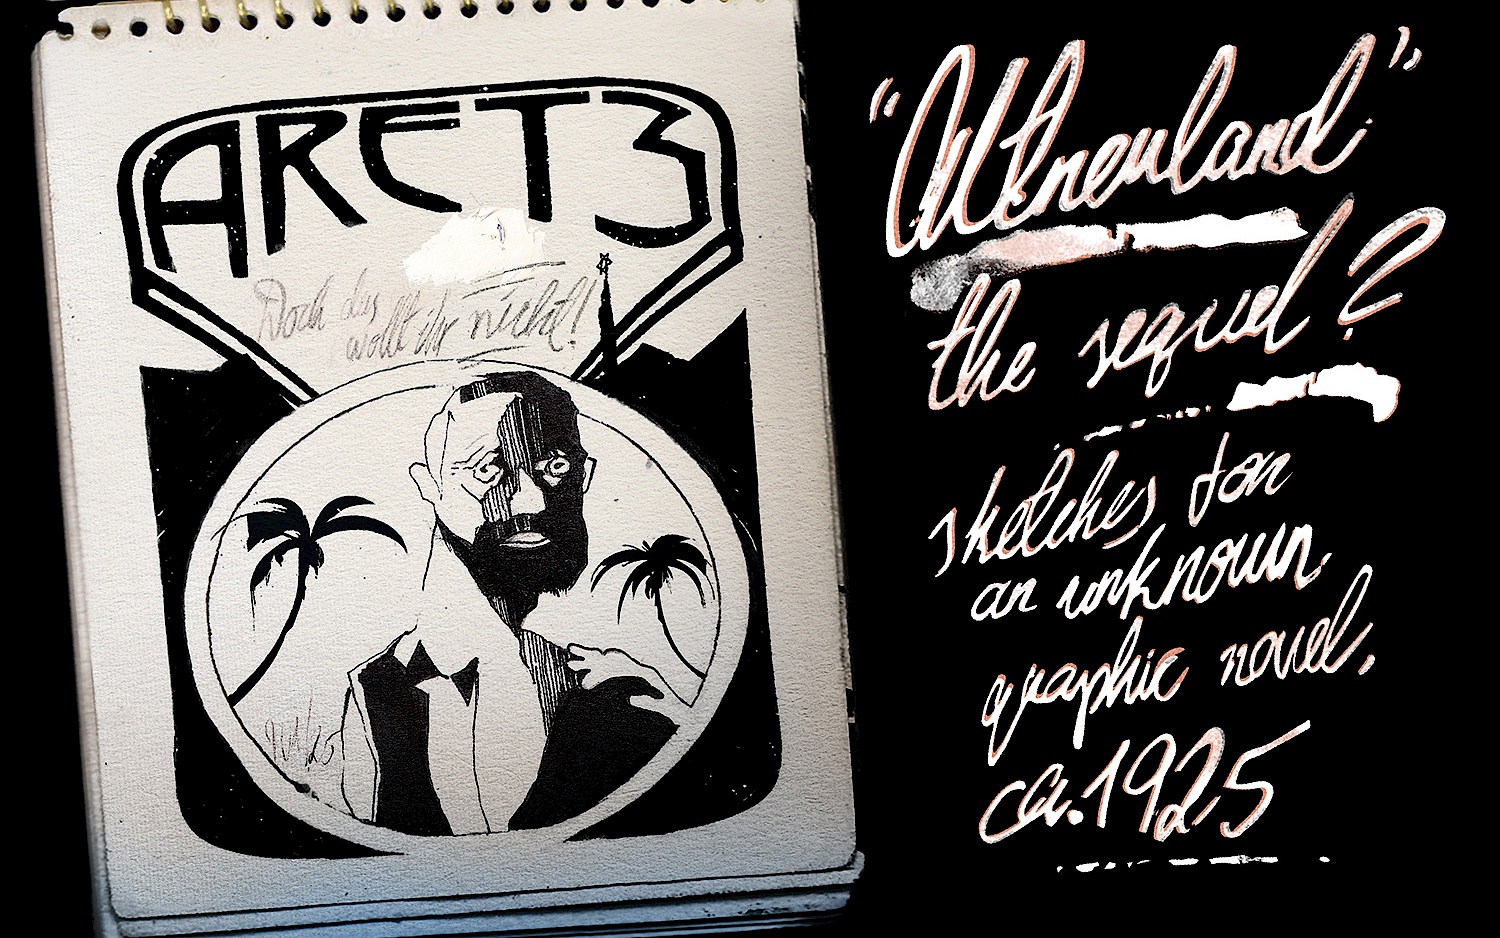 ARET3
Doch das
wollt ihr nicht!
"Altneuland"
the sequel?
sketches for
an unknown
graphic novel,
ca. 1925